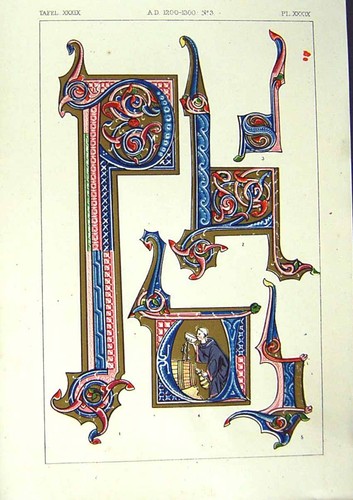 TAFEL XXXIX A.D. 1200-1300 Nº3. PL. XXXIX
1
2
3
4
5